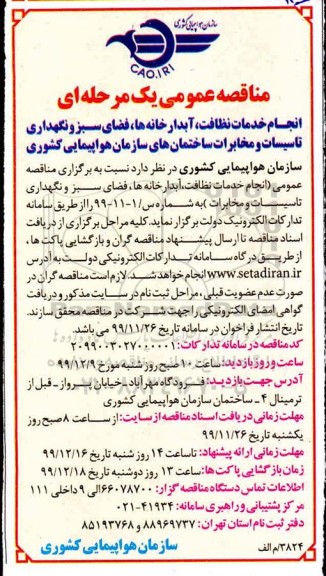 سازمان هواپیمایی کشوری
CAO.IRI
مناقصه عمومی یک مرحله ای
انجـام خدمات نظافت، آبدارخانه ها، فضای سبز و نگهداری
تاسیسات و مخابرات ساختمان های سازمان هواپیمایی کشوری
سازمان هواپیمایی کشوری در نظر دارد نسبت به برگزاری مناقصه
عمومی (انجام خدمات نظافت، آبدارخانه ها، فضای سبز و نگهداری
تاسیسات و مخابرات) به شماره س/۱-۱۱-۹۹ را از طریق سامانه
تدارکات الکترونیک دولت برگزار نماید. کلیه مراحل برگزاری از دریافت
اسناد مناقصه تا ارسال پیشنهاد مناقصه گران و بازگشایی پاکت ها،
از طریق درگاه سامانه تدارکات الکترونیکی دولت به آدرس
www.setadiran.ir انجام خواهد شد. لازم است مناقصه گران در
صورت عدم عضویت قبلی، مراحل ثبت نام در سایت مذکور و دریافت
گواهی امضای الکترونیکی را جهت شرکت در مناقصه محقق سازند.
تاریخ انتشار فراخوان در سامانه تاریخ ۹۹/۱۱/۲۶ می باشد.
کد مناقصه در سامانه تدارکات: ۲۰۹۹۰۰۳۰۲۷۰۰۰۰۰۱
ساعت و روز بازدید: ساعت ۱۰ صبح روز شنبه مورخ ۹۹/۱۲/۹
آدرس جهت بازدید: فرودگاه مهرآباد - خیابان پرواز - قبل از
ترمینال ۴ - ساختمان سازمان هواپیمایی کشوری
مهلت زمانی دریافت اسناد مناقصه از سایت: از ساعت ۸ صبح روز
یکشنبه تاریخ ۹۹/۱۱/۲۶
مهلت زمانی ارائه پیشنهاد: تا ساعت ۱۴ روز شنبه تاریخ ۹۹/۱۲/۱۶
زمان بازگشایی پاکت ها: ساعت ۱۳ روز دوشنبه تاریخ ۹۹/۱۲/۱۸
اطلاعات تماس دستگاه مناقصه گزار: ۶۶۰۷۸۷۰۰ الی ۹ داخلی ۱۱۱
مرکز پشتیبانی و راهبری سامانه: ۴۱۹۳۴-۰۲۱
دفتر ثبت نام استان تهران: ۸۸۹۶۹۷۳۷ و ۸۵۱۹۳۷۶۸
۳۸۲۴/م الف
سازمان هواپیمایی کشوری